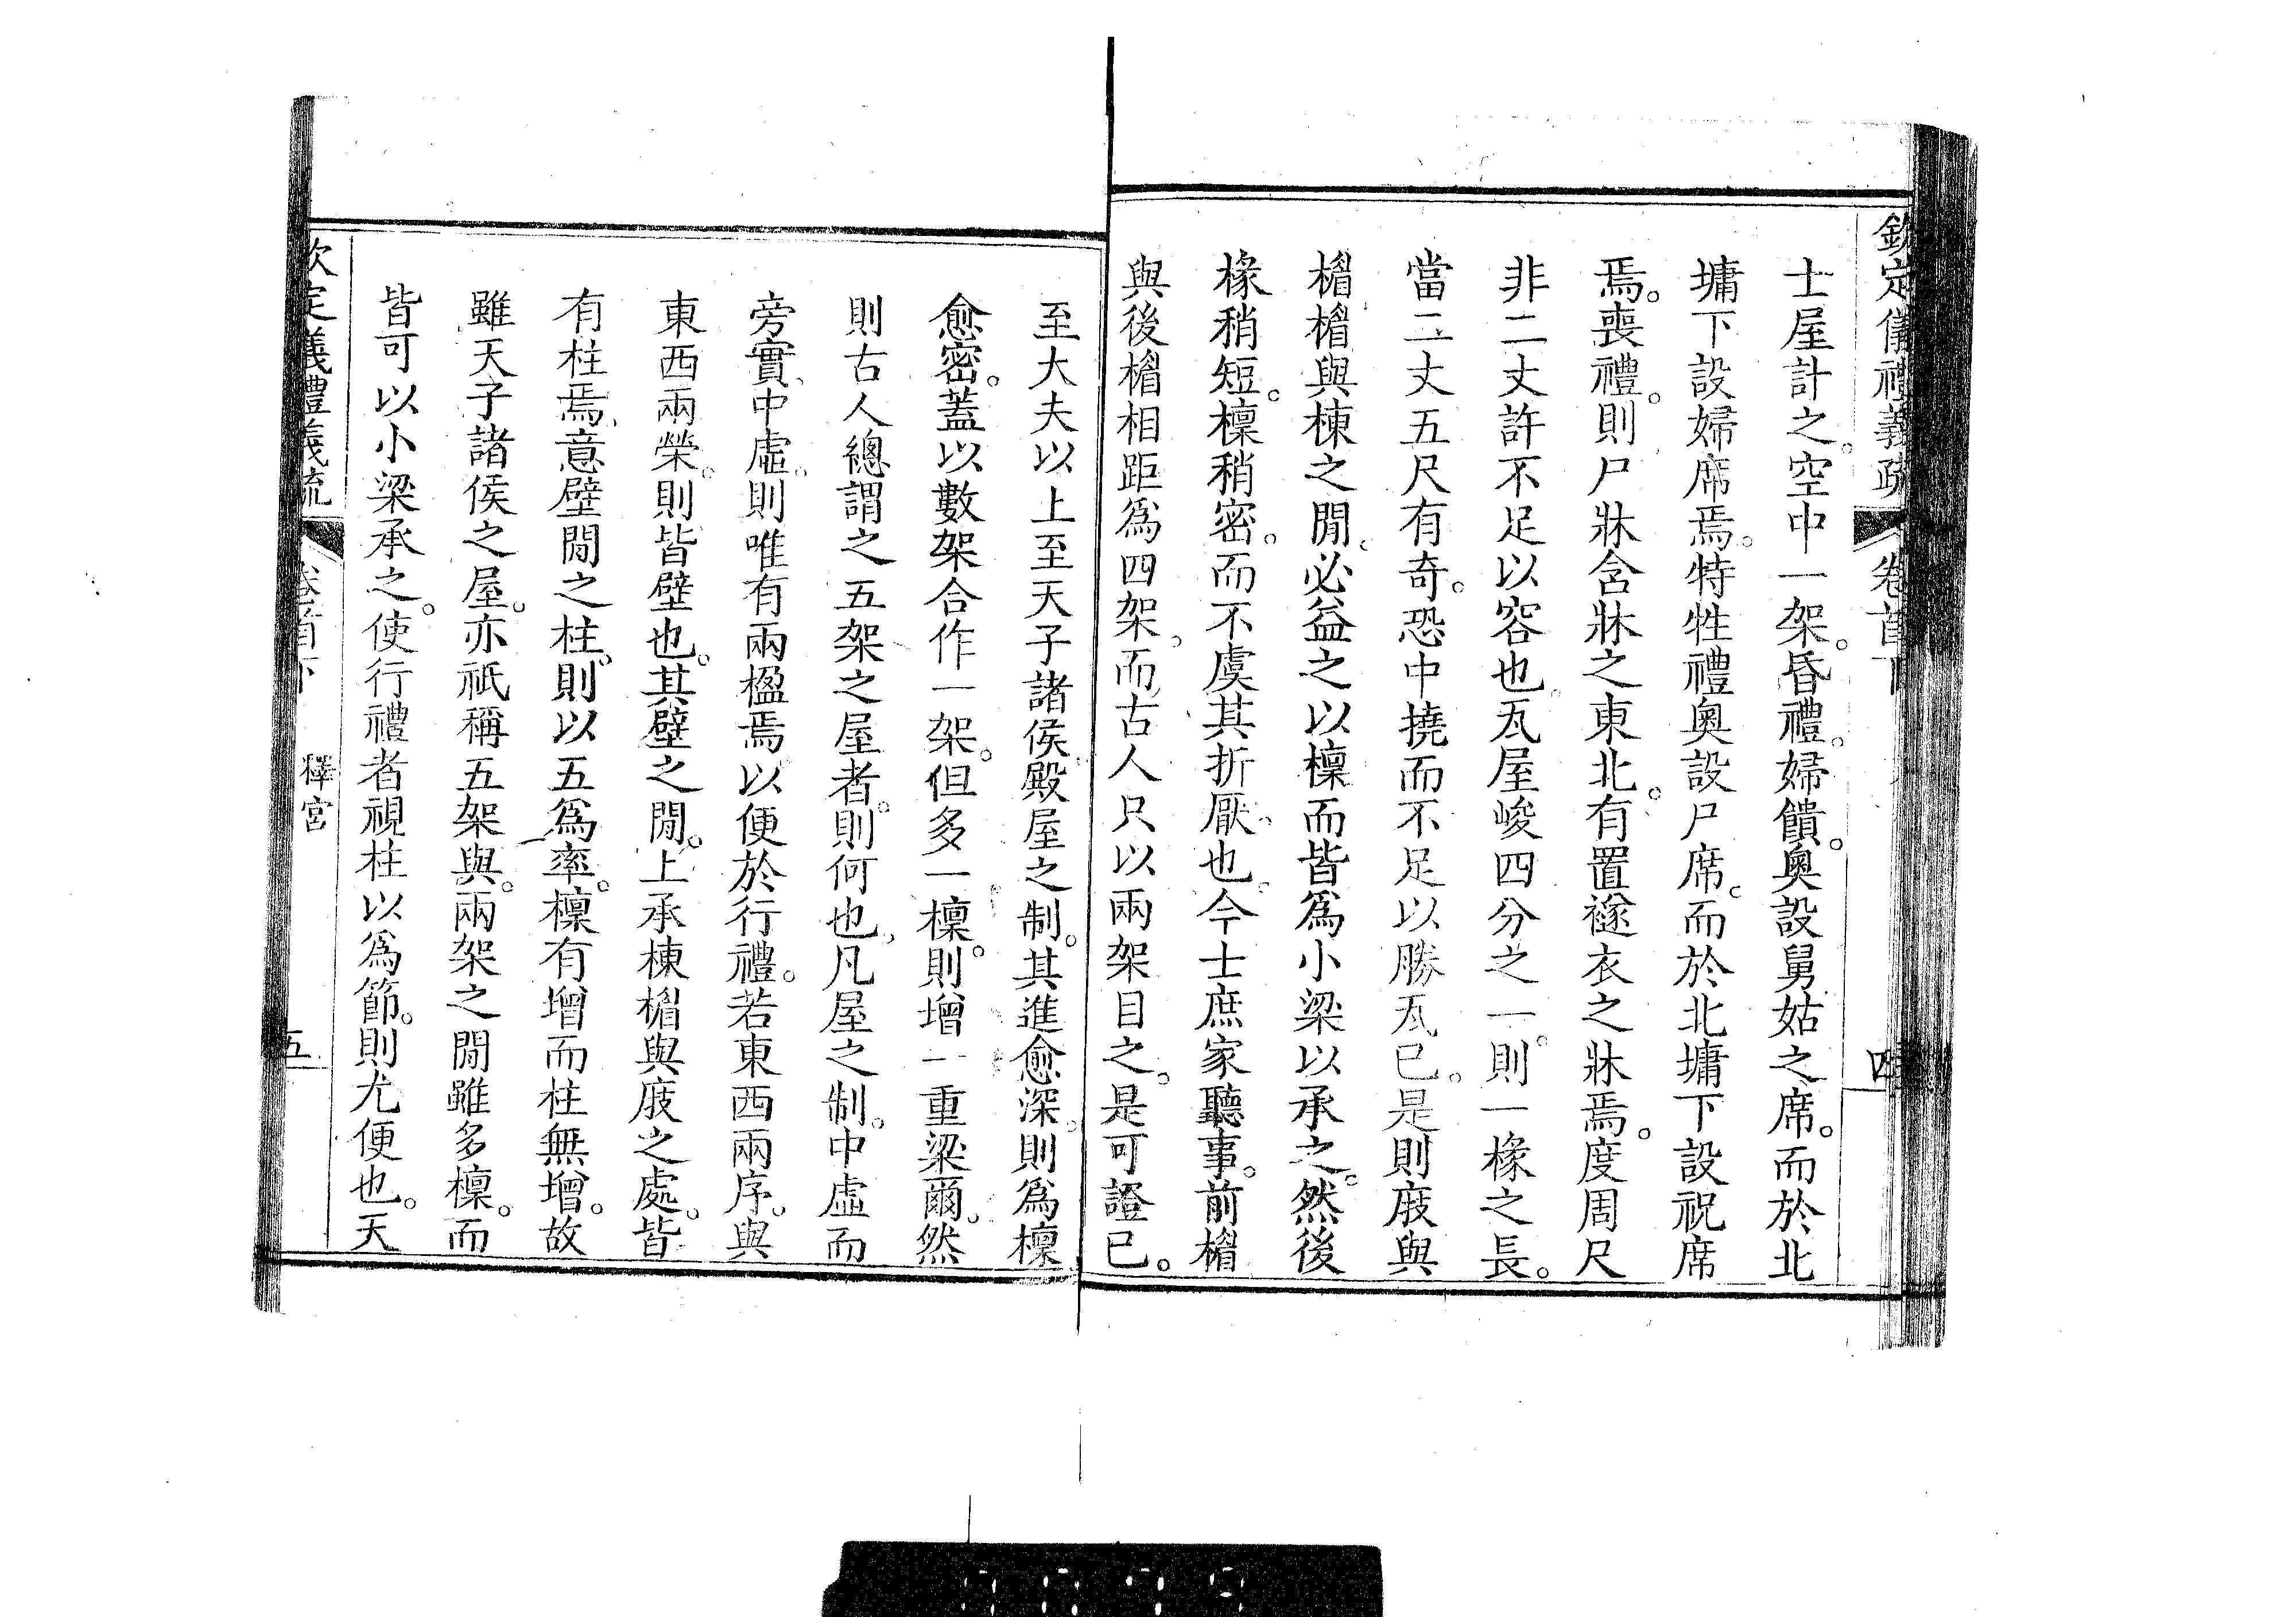 欽定儀禮義疏 卷首下 四
士屋計之。空中一架。昏禮。婦饋。奧設舅姑之席。而於北
墉下設婦席焉。特牲禮奧設尸席。而於北墉下設祝席
焉。喪禮。則尸牀含牀之東北。有置襚衣之牀焉。度周尺
非二丈許不足以容也。瓦屋峻四分之一。則一椽之長。
當二丈五尺有奇。恐中撓而不足以勝瓦已。是則庪與
楣楣與棟之閒。必益之以檁而皆爲小梁以承之。然後
椽稍短。檁稍密。而不虞其折厭也。今士庶家聽事。前楣
與後楣相距爲四架。而古人只以兩架目之。是可證已。
至大夫以上至天子諸侯。殿屋之制。其進愈深。則爲檁
愈密。蓋以數架合作一架。但多一檁。則增一重梁爾。然
則古人總謂之五架之屋者。則何也。凡屋之制。中虛而
旁實。中虛。則唯有兩楹焉。以便於行禮。若東西兩序。與
東西兩榮。則皆壁也。其壁之閒。上承棟楣與庪之處。皆
有柱焉。意壁閒之柱。則以五爲率。檁有增而柱無增。故
雖天子諸侯之屋。亦祇稱五架與。兩架之閒雖多檁。而
皆可以小梁承之。使行禮者視柱以爲節。則尤便也。天
欽定儀禮義疏 卷首下 釋宮 五